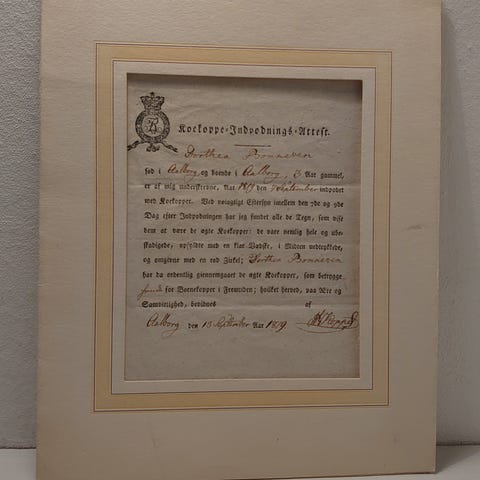 Kokoppe-Indpodnings-Attest.
Dorthea Bonnevin
fød i Aalborg og boende i Aalborg, 3 Aar gammel,
er af mig underskrevne, Aar 1819 den September indpodet
med Kokopper. Ved nøiagtigt Eftersyn imellem den 7de og 9de
Dag efter Indpodningen har jeg fundet alle de Tegn, som vise
dem at være de ægte Kokopper: de vare nemlig hele og ube-
skadigede, opfyldte med en klar Vædske, i Midten nedtrykkede,
og omgivne med en rød Zirkel; Dorthea Bonnevin
har da ordentlig giennemgaaet de ægte Kokopper, som betrygge
for Børnekopper i Fremtiden; hvilket herved, paa Ære og
Samvittighed, bevidnes af
Aalborg den 13 September Aar 1819.